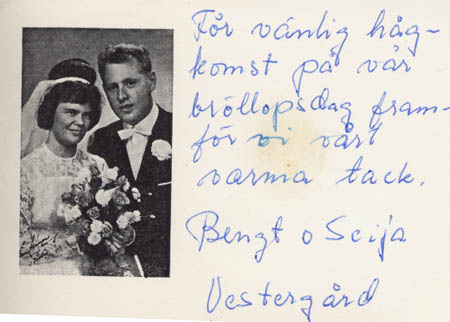 För vänlig håg-
komst på vår
bröllopsdag fram-
för vi vårt
varma tack.
Bengt o Seija
Vestergård